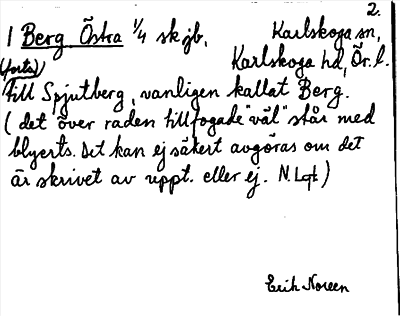 2.
1 Berg Östra 1/4 sk jb, Karlskoga sn,
Karlskoga hd, Ör. l.
(forts)
till Spjutberg, vanligen kallat Berg.
(det över raden tillfogade "väl" står med
blyerts. Det kan ej säkert avgöras om det
är skrivet av uppt. eller ej. N. Lqt)
Erik Noreen